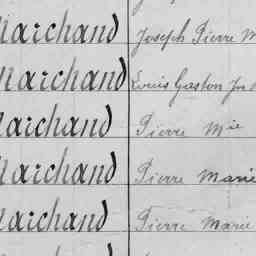 Marchand Joseph Pierre M
Marchand Louis Gaston
Marchand Pierre Mie
Marchand Pierre Marie
Marchand Pierre Marie